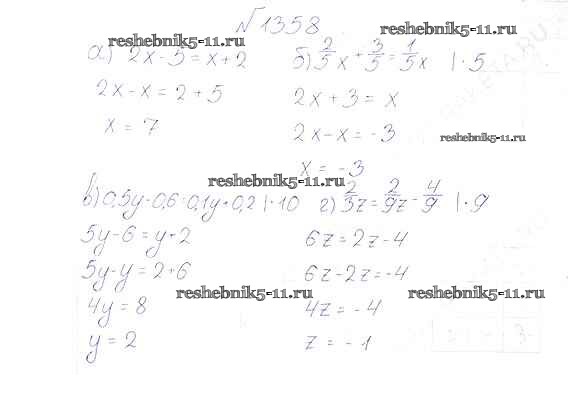 №1358
reshebnik5-11.ru
а) 2x-5=x+2
2x-x=2+5
x=7
reshebnik5-11.ru
б) 2/5 x + 3/5 = 1/5 x |·5
2x+3=x
reshebnik5-11.ru
2x-x=-3
x=-3
reshebnik5-11.ru
в) 0,5y-0,6=0,1y+0,2 |·10
5y-6=y+2
5y-y=2+6
reshebnik5-11.ru
4y=8
y=2
г) 2/3 z = 2/9 z - 4/9 |·9
6z=2z-4
6z-2z=-4
reshebnik5-11.ru
4z=-4
z=-1